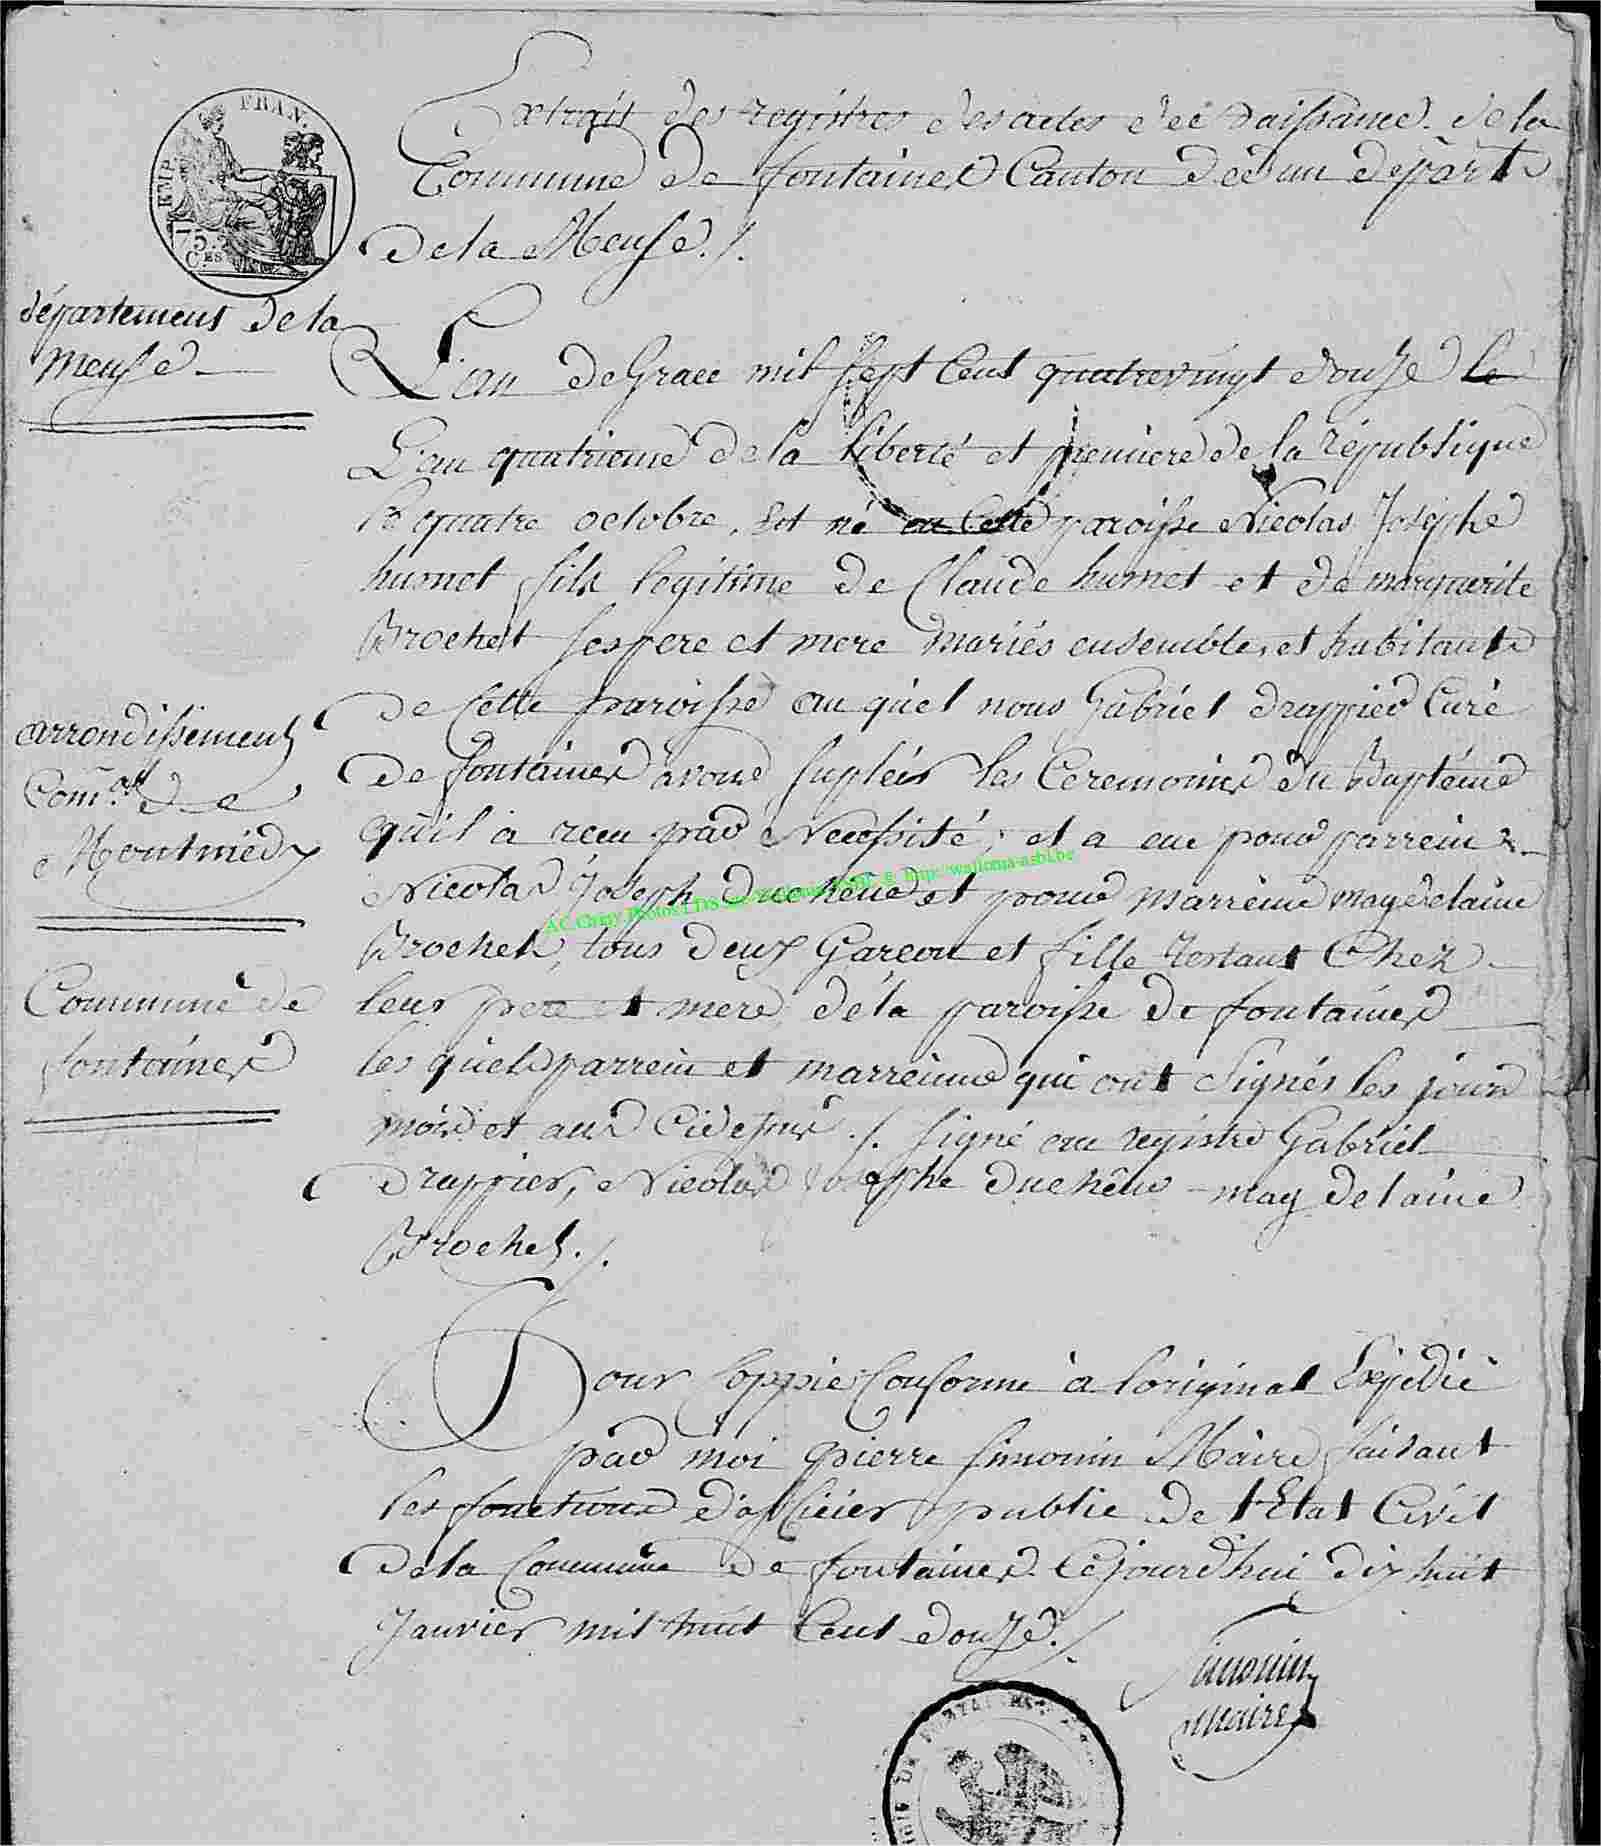 FRAN.
EMP
75.
C.ES
Extrait des registres des actes de Naissance. de la
Commune de fontaines Canton de dun départ.t
De la Meuse ./.
département de la
Meuse
L'an de Grace mil sept Cent quatrevingt douze le
L'an quatrieme de la liberté et premiere de la république
le quatre octobre, Est né en Cette paroisse Nicolas Josephe
humet fils legitime de Claude humet et de marguerite
Brochet ses pere et mere mariés ensemble, et habitants
de Cette paroisse au quel nous Gabriel drappier Curé
arrondissement
de fontaines avons supleés les Ceremonies du Baptéme
Com.al de
qu'il a recu par Necessité; et a eu pour parrein
Montmédy
Nicolas Joseph duchêne et pour Marreine magdelaine
AC Crepy Photos LDS http: walloma-asbl.be
Brochet, tous deux Garcon et fille restant Chez
Commune de
leur pere et mere de la paroisse de fontaines
fontaines
les quels parrein et marreinne qui ont Signés les jour
mois et an Cidessus ./. signé au registre Gabriel
Drappier, Nicolas Josephe duchêne magdelaine
Brochet ./.
Pour Coppie Conforme à l'original Expedié
par moi pierre simonin Maire faisant
les fonctions d'officier public de l'Etat Civil
de la Commune de fontaines. Cejourd'hui dix huit
Janvier mil huit Cent douze ./.
Simonin
maire